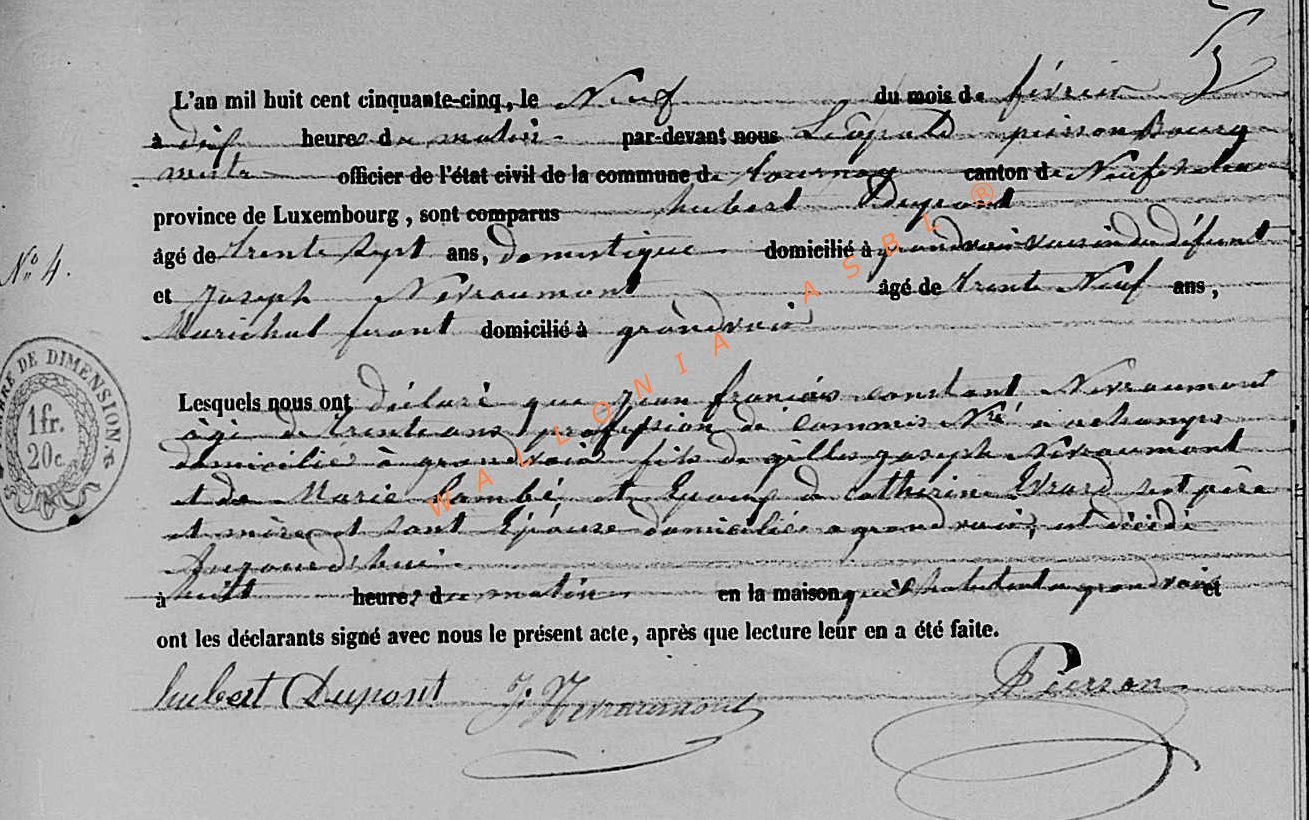 5
L'an mil huit cent cinquante-cinq, le Neuf du mois de février
à dix heures du matin par-devant nous Léopold pierson Bourg
mestre officier de l'état civil de la commune de tournay canton de Neufchateau
province de Luxembourg, sont comparus hubert Dupont
âgé de trente sept ans, domestique domicilié à grandvoir voisin du défunt
N° 4.
et Joseph Nevraumont âgé de trente Neuf ans,
Marichal ferant domicilié à grandvoir
Lesquels nous ont déclaré que jean francois constant Nevraumont
âgé de trente ans profession de commis
domicilié à grandvoir fils de gilles joseph Nevraumont
et de Marie Lambé et Epoux de catherine Evrard père
et mère et sont Epouse domiciliés a grandvoir, est décédé
Aujourd'hui
à huitt heures du matin en la maison qu'il habitait a grandvoir et
ont les déclarants signé avec nous le présent acte, après que lecture leur en a été faite.
hubert Dupont J. Nevraumont Pierson
TIMBRE DE DIMENSION
1 fr.
20 c.
WALLONIA ASBL ®